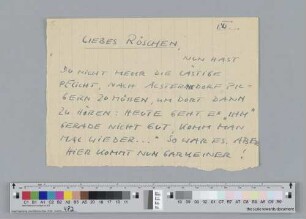 LIEBES RÖSCHEN,
NUN HAST
DU NICHT MEHR DIE LÄSTIGE
PFLICHT, NACH ALSTERDORF PIL-
GERN ZU MÜSSEN, UM DORT DANN
ZU HÖREN: HEUTE GEHT ES IHM
GERADE NICHT GUT, KOMM MAN
MAL WIEDER..." SO WAR ES. ABER
HIER KOMMT NUN GARKEINER!